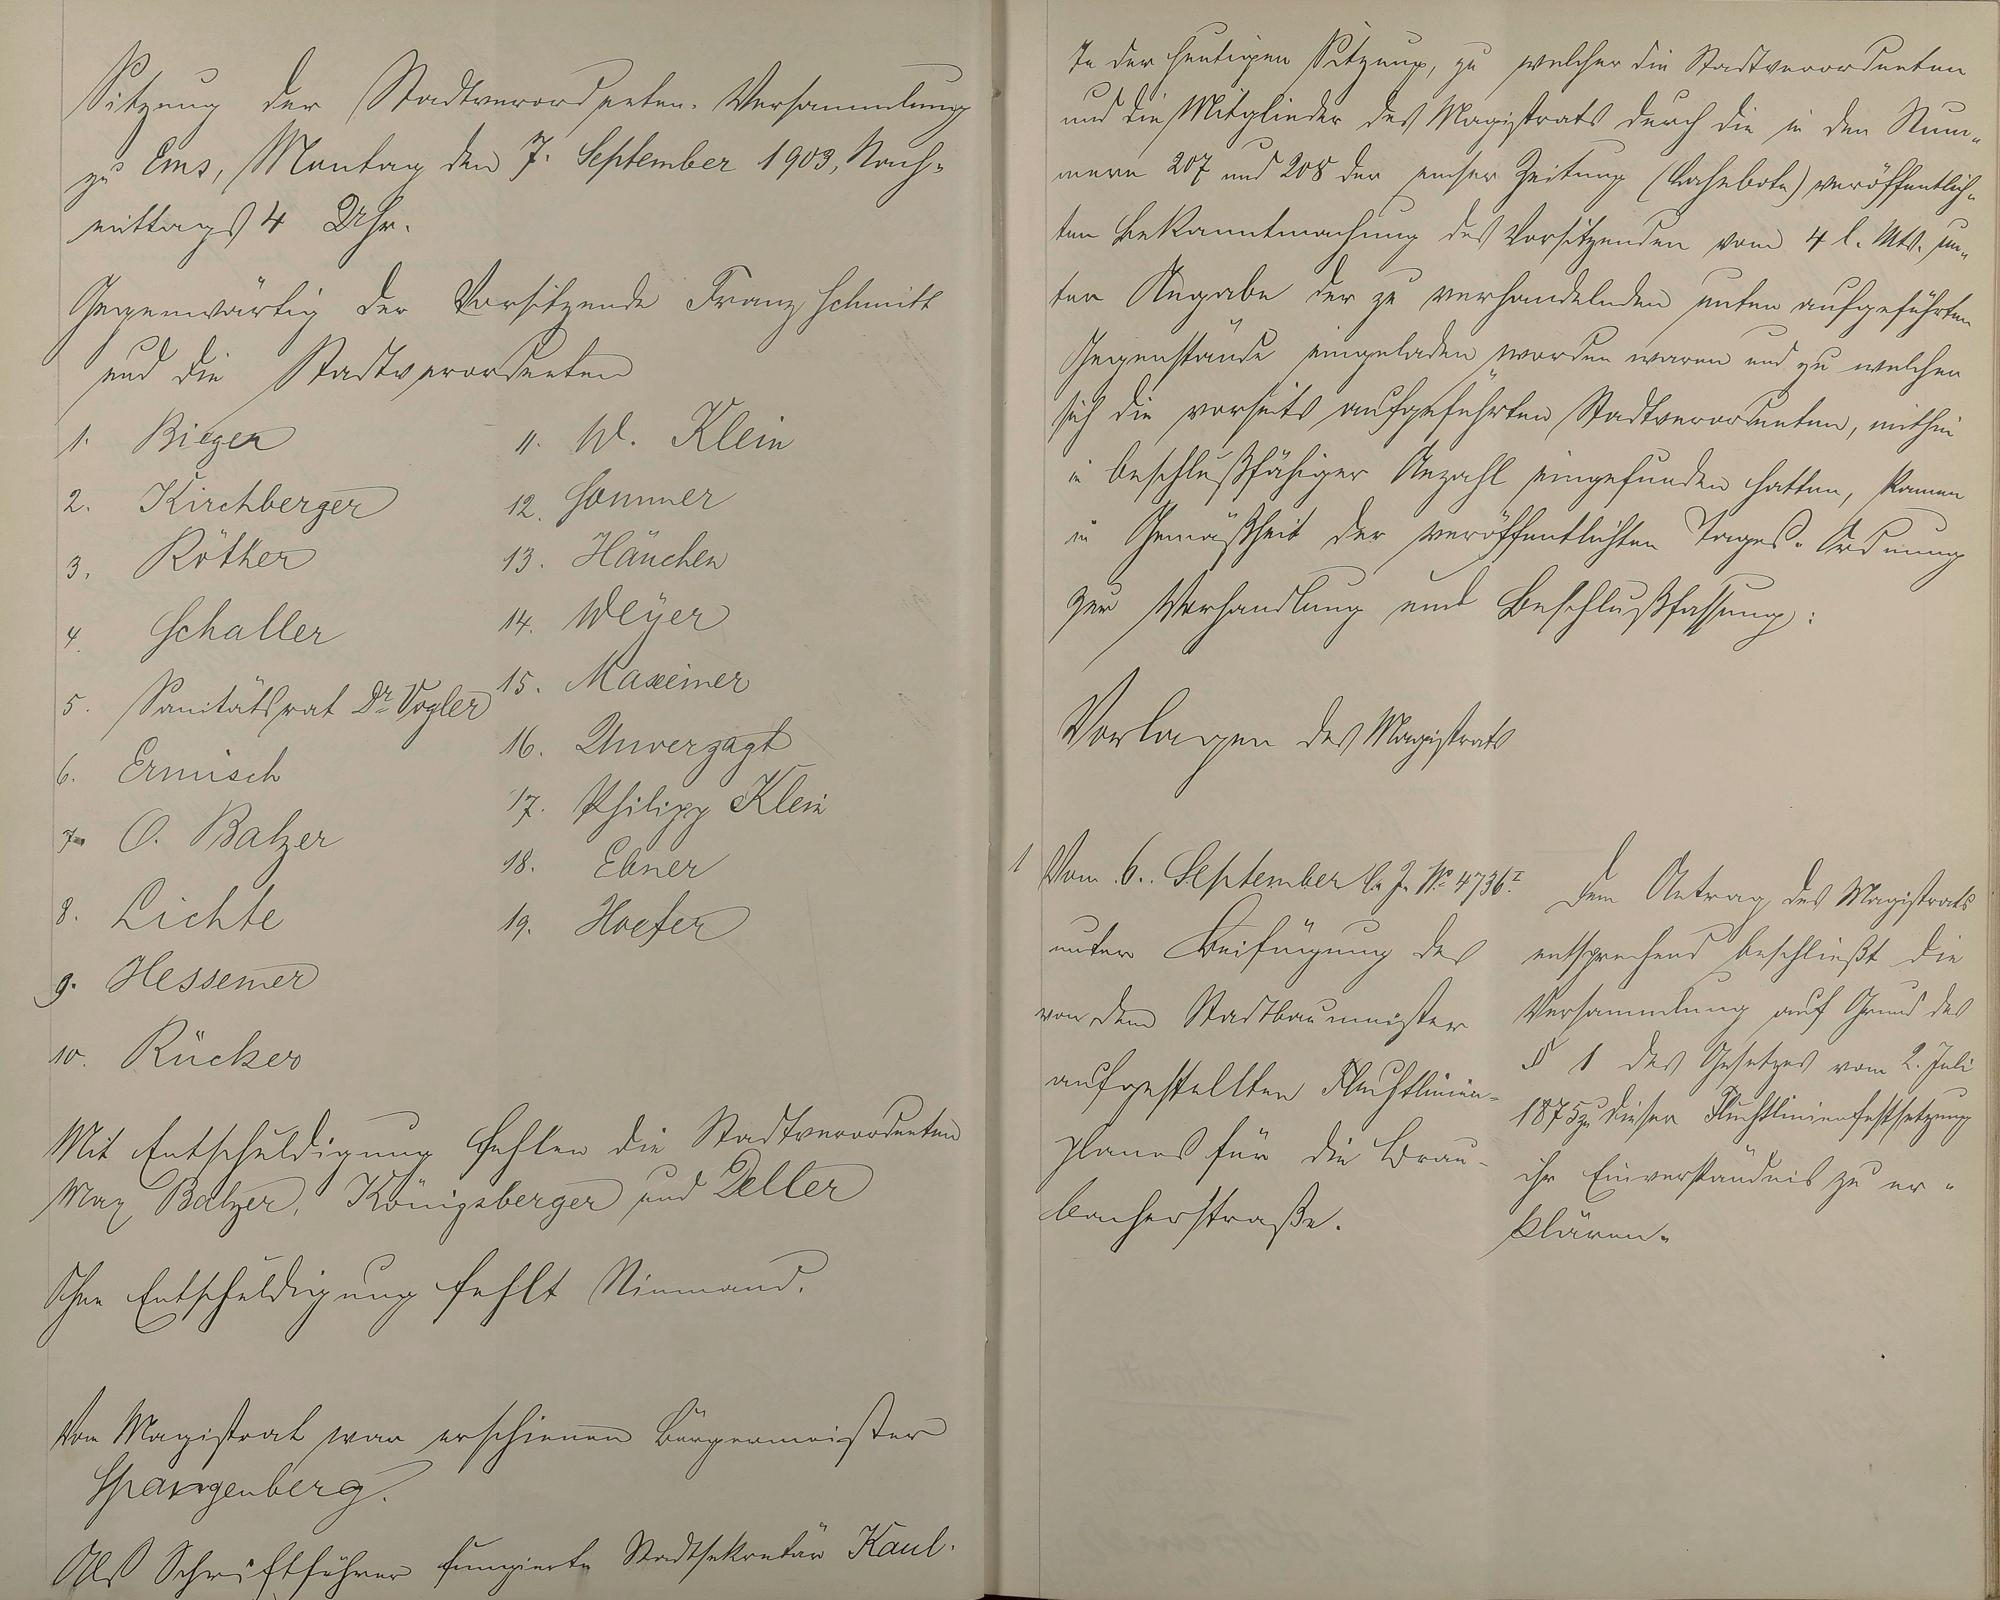 Sitzung der Stadtverordneten-Versammlung
zu Ems, Montag den 7. September 1903, Nach-
mittags 4 Uhr.
Gegenwärtig der Vorsitzende Franz Schmitt
und die Stadtverordneten
1. Bieger
2. Kirchberger
3. Röther
4. Schaller
5. Sanitätsrat Dr. Vogler
6. Ermisch
7. O. Balzer
8. Lichte
9. Hessemer
10. Rücker
11. W. Klein
12. Sommer
13. Hänchen
14. Weyer
15. Maxeiner
16. Unverzagt
17. Philipp Klein
18. Ebner
19. Hoefer
Mit Entschuldigung fehlen die Stadtverordneten
Max Balzer, Königsberger und Deller
Ohne Entschuldigung fehlt Niemand.
Vom Magistrat war erschienen Bürgermeister
Spangenberg.
Als Schriftführer fungierte Stadtsekretär Kaul.
In der heutigen Sitzung, zu welcher die Stadtverordneten
und die Mitglieder des Magistrats durch die in den Num-
mern 207 und 208 der Emser Zeitung (Lahnbote) veröffentlich-
ten Bekanntmachung des Vorsitzenden vom 4 l. Mts. un-
ter Angabe der zu verhandelnden unten aufgeführten
Gegenstände eingeladen worden waren und zu welcher
sich die vorseits aufgeführten Stadtverordneten, mithin
in beschlußfähiger Anzahl eingefunden hatten, kamen
in Gemäßheit der veröffentlichten Tages-Ordnung
zur Verhandlung und Beschlußfassung:
Vorlagen des Magistrats
1 Vom 6. September l. J. No 4736 I
unter Beifügung des
von dem Stadtbaumeister
aufgestellten Fluchtlinien-
planes für die Brau-
bacherstraße.
Dem Antrag des Magistrats
entsprechend beschließt die
Versammlung auf Grund des
§ 1 des Gesetzes vom 2. Juli
1875 zu dieser Fluchtlinienfestsetzung
ihr Einverständnis zu er-
klären.